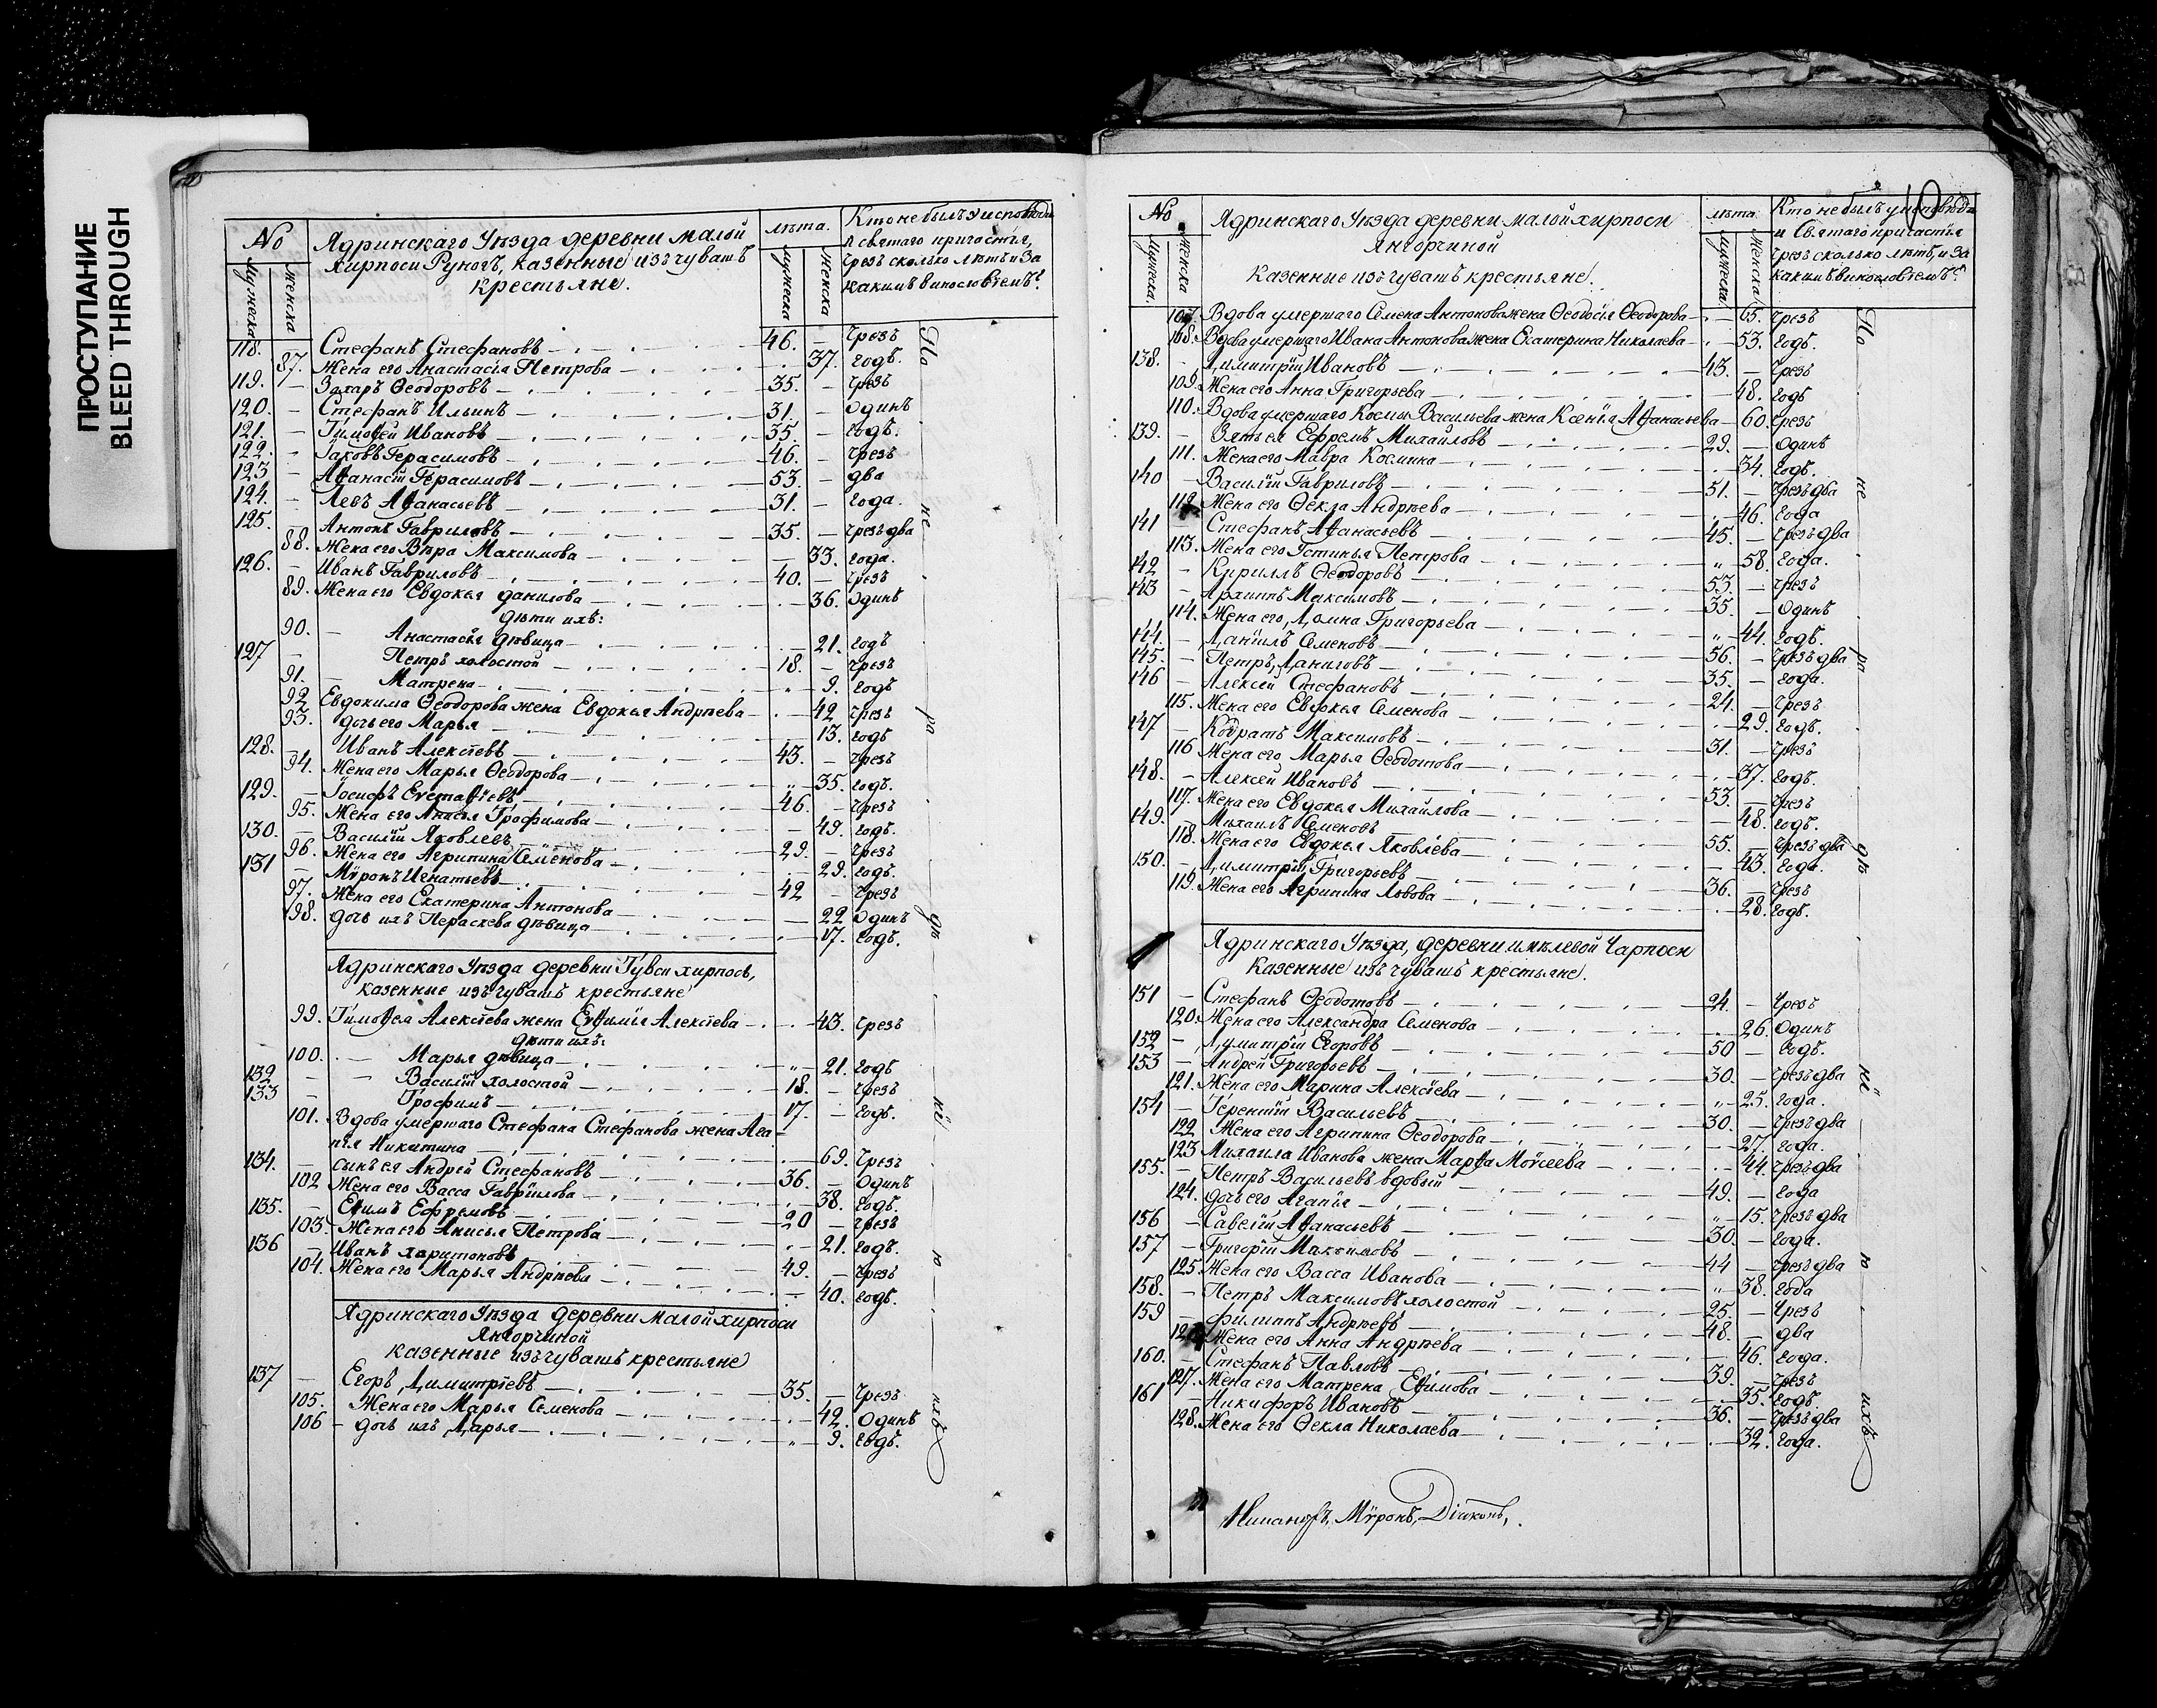 ПРОСТУПАНИЕ
BLEED THROUGH
No
Мужеска
Женска
Ядринскаго Уѣзда деревни малой
хирпоси Руногъ, казенные изъ чувашъ
крестьяне.
лѣта.
Мужеска
Женска
Кто не былъ у исповѣди
и святаго причастія,
чрезъ сколько лѣтъ и за
какимъ винословіемъ?
118. — Стефанъ Стефановъ — 46. — чрезъ
87. Жена его Анастасія Петрова — 37. годъ.
119. — Захаръ Ѳеодоровъ — 35. — чрезъ
120. — Стефанъ Ильинъ — 31. — одинъ
121. — Тимоѳей Ивановъ — 35. — годъ.
122. — Іаковъ Герасимовъ — 46. — чрезъ
123 — Аѳанасій Герасимовъ — 53. — два
124. — Левъ Аѳанасьевъ — 31. — года.
125. — Антонъ Гавриловъ — 35. — чрезъ два
88. Жена его Вѣра Максимова — 33. года.
126. — Иванъ Гавриловъ — 40. — чрезъ
89. Жена его Евдокья Данилова — 36. одинъ
дѣти ихъ:
90. — Анастасья дѣвица — 21. годъ
127 — Петръ холостой — 18. — чрезъ
91. — Матрена — 9. годъ
92 Евдокима Ѳеодорова жена Евдокья Андрѣева — 42 чрезъ
93. дочь его Марья — 13. годъ
128. — Иванъ Алексѣевъ — 43. — чрезъ
94. Жена его Марья Ѳеодорова — 35. годъ.
129. — Іосифъ Евстаѳіевъ — 46. — чрезъ
95. Жена его Анисья Трофимова — 49. годъ.
130. — Василій Яковлевъ — 29. — чрезъ
96. Жена его Агрипина Семенова — 29. годъ.
131 — Мѵронъ Игнатьевъ — 42 — чрезъ
97. Жена его Екатерина Антонова — 22 одинъ
98. дочь ихъ Параскева дѣвица — 17. годъ.
Ядринскаго Уѣзда деревни Тувси хирпось,
казенные изъ чувашъ крестьяне
99. Тимоѳея Алексѣева жена Евѳимія Алексѣева — 43. чрезъ
дѣти ихъ:
100. — Марья дѣвица — 21. годъ
132 — Василій холостой — 18. — чрезъ
133 — Трофимъ — 17. — годъ.
101. Вдова умершаго Стефана Стефанова жена Ага-
пія Никитина — 69. чрезъ
134. — сынъ ея Андрей Стефановъ — 36. — одинъ
102 Жена его Васса Гаврiилова — 38. годъ.
135. — Еѳимъ Ефремовъ — 20 — чрезъ
103. Жена его Анисья Петрова — 21. годъ.
136 — Иванъ Харитоновъ — 49. — чрезъ
104. Жена его Марья Андрѣева — 40. годъ.
Ядринскаго Уѣзда деревни Малой хирпоси
Янгорчиной
казенные изъ чувашъ крестьяне
137 — Егоръ Димитріевъ — 35. — чрезъ
105. Жена его Марья Семенова — 42. одинъ
106 — дочь ихъ Дарья — 9. годъ.
По не ра дѣ нiю ихъ
No
Мужеска
Женска
Ядринскаго Уѣзда деревни малой хирпоси
Янгорчиной
казенные изъ чувашъ крестьяне.
лѣта
Мужеска
Женска
Кто не былъ у исповѣди
и Святаго причастія
чрезъ сколько лѣтъ, и за
какимъ винословіемъ?
107. Вдова умершаго Семена Антонова жена Ѳеодосія Ѳеодорова — 65. чрезъ
108. Вдова умершаго Ивана Антонова жена Екатерина Николаева — 53. годъ.
138. — Димитрій Ивановъ — 43. — чрезъ
109. Жена его Анна Григорьева — 48. годъ
110. Вдова умершаго Космы Васильева жена Ксенія Аѳанасьева — 60. чрезъ
139. — Зять ея Ефремъ Михайловъ — 29. — одинъ
111. Жена его Мавра Космина — 34. годъ.
140 — Василій Гавриловъ — 51. — чрезъ два
112. Жена его Ѳекла Андрѣева — 46. года
141 — Стефанъ Аѳанасьевъ — 45. — чрезъ два
113. Жена его Устинья Петрова — 58. года.
142 — Кириллъ Ѳеодоровъ — 53. — чрезъ
143 — Архипъ Максимовъ — 35. — одинъ
114. Жена его Домна Григорьева — 44. годъ.
144. — Даніилъ Семеновъ — 56. — чрезъ два
145. — Петръ Даниловъ — 35. — года.
146 — Алексѣй Стефановъ — 24. — чрезъ
115. Жена его Евдокья Семенова — 29. годъ.
147 — Кодратъ Максимовъ — 31. — чрезъ
116 Жена его Марья Ѳеодотова — 37. годъ.
148. — Алексѣй Ивановъ — 53. — чрезъ
117. Жена его Евдокья Михайлова — 48. годъ.
149. — Михаилъ Семеновъ — 55. — чрезъ два
118. Жена его Евдокья Яковлева — 43. года.
150. — Димитрій Григорьевъ — 36. — чрезъ
119. Жена его Агрипина Львова — 28. годъ.
Ядринскаго Уѣзда, деревни Чарпоси
Казенные изъ чувашъ крестьяне.
151 — Стефанъ Ѳеодотовъ — 24. — чрезъ
120. Жена его Александра Семенова — 26. одинъ
152 — Димитрій Егоровъ — 50 — годъ.
153 — Андрей Григорьевъ — 30. — чрезъ два
121. Жена его Марина Алексѣева — 25. года.
154 — Терентій Васильевъ — 30. — чрезъ два
122. Жена его Агрипина Ѳеодорова — 27. года.
123 Михаила Иванова жена Марѳа Моѵсеева — 44. чрезъ два
155. — Петръ Васильевъ вдовый — 49. — года
124. дочь его Агапія — 15. чрезъ два
156 — Савелій Аѳанасьевъ — 30. — года.
157 — Григорій Максимовъ — 44 — чрезъ два
125. Жена его Васса Иванова — 38. года
158. — Петръ Максимовъ холостой — 25. — чрезъ
159 — Филиппъ Андрѣевъ — 48. — два
126. Жена его Анна Андрѣева — 46. года.
160. — Стефанъ Павловъ — 39. — чрезъ
127. Жена его Матрена Еѳимова — 35. годъ.
161 — Никифоръ Ивановъ — 36. — чрезъ два
128. Жена его Ѳекла Николаева — 32. года.
По не ра дѣ нiю ихъ
Мѵронъ, Діаконъ,